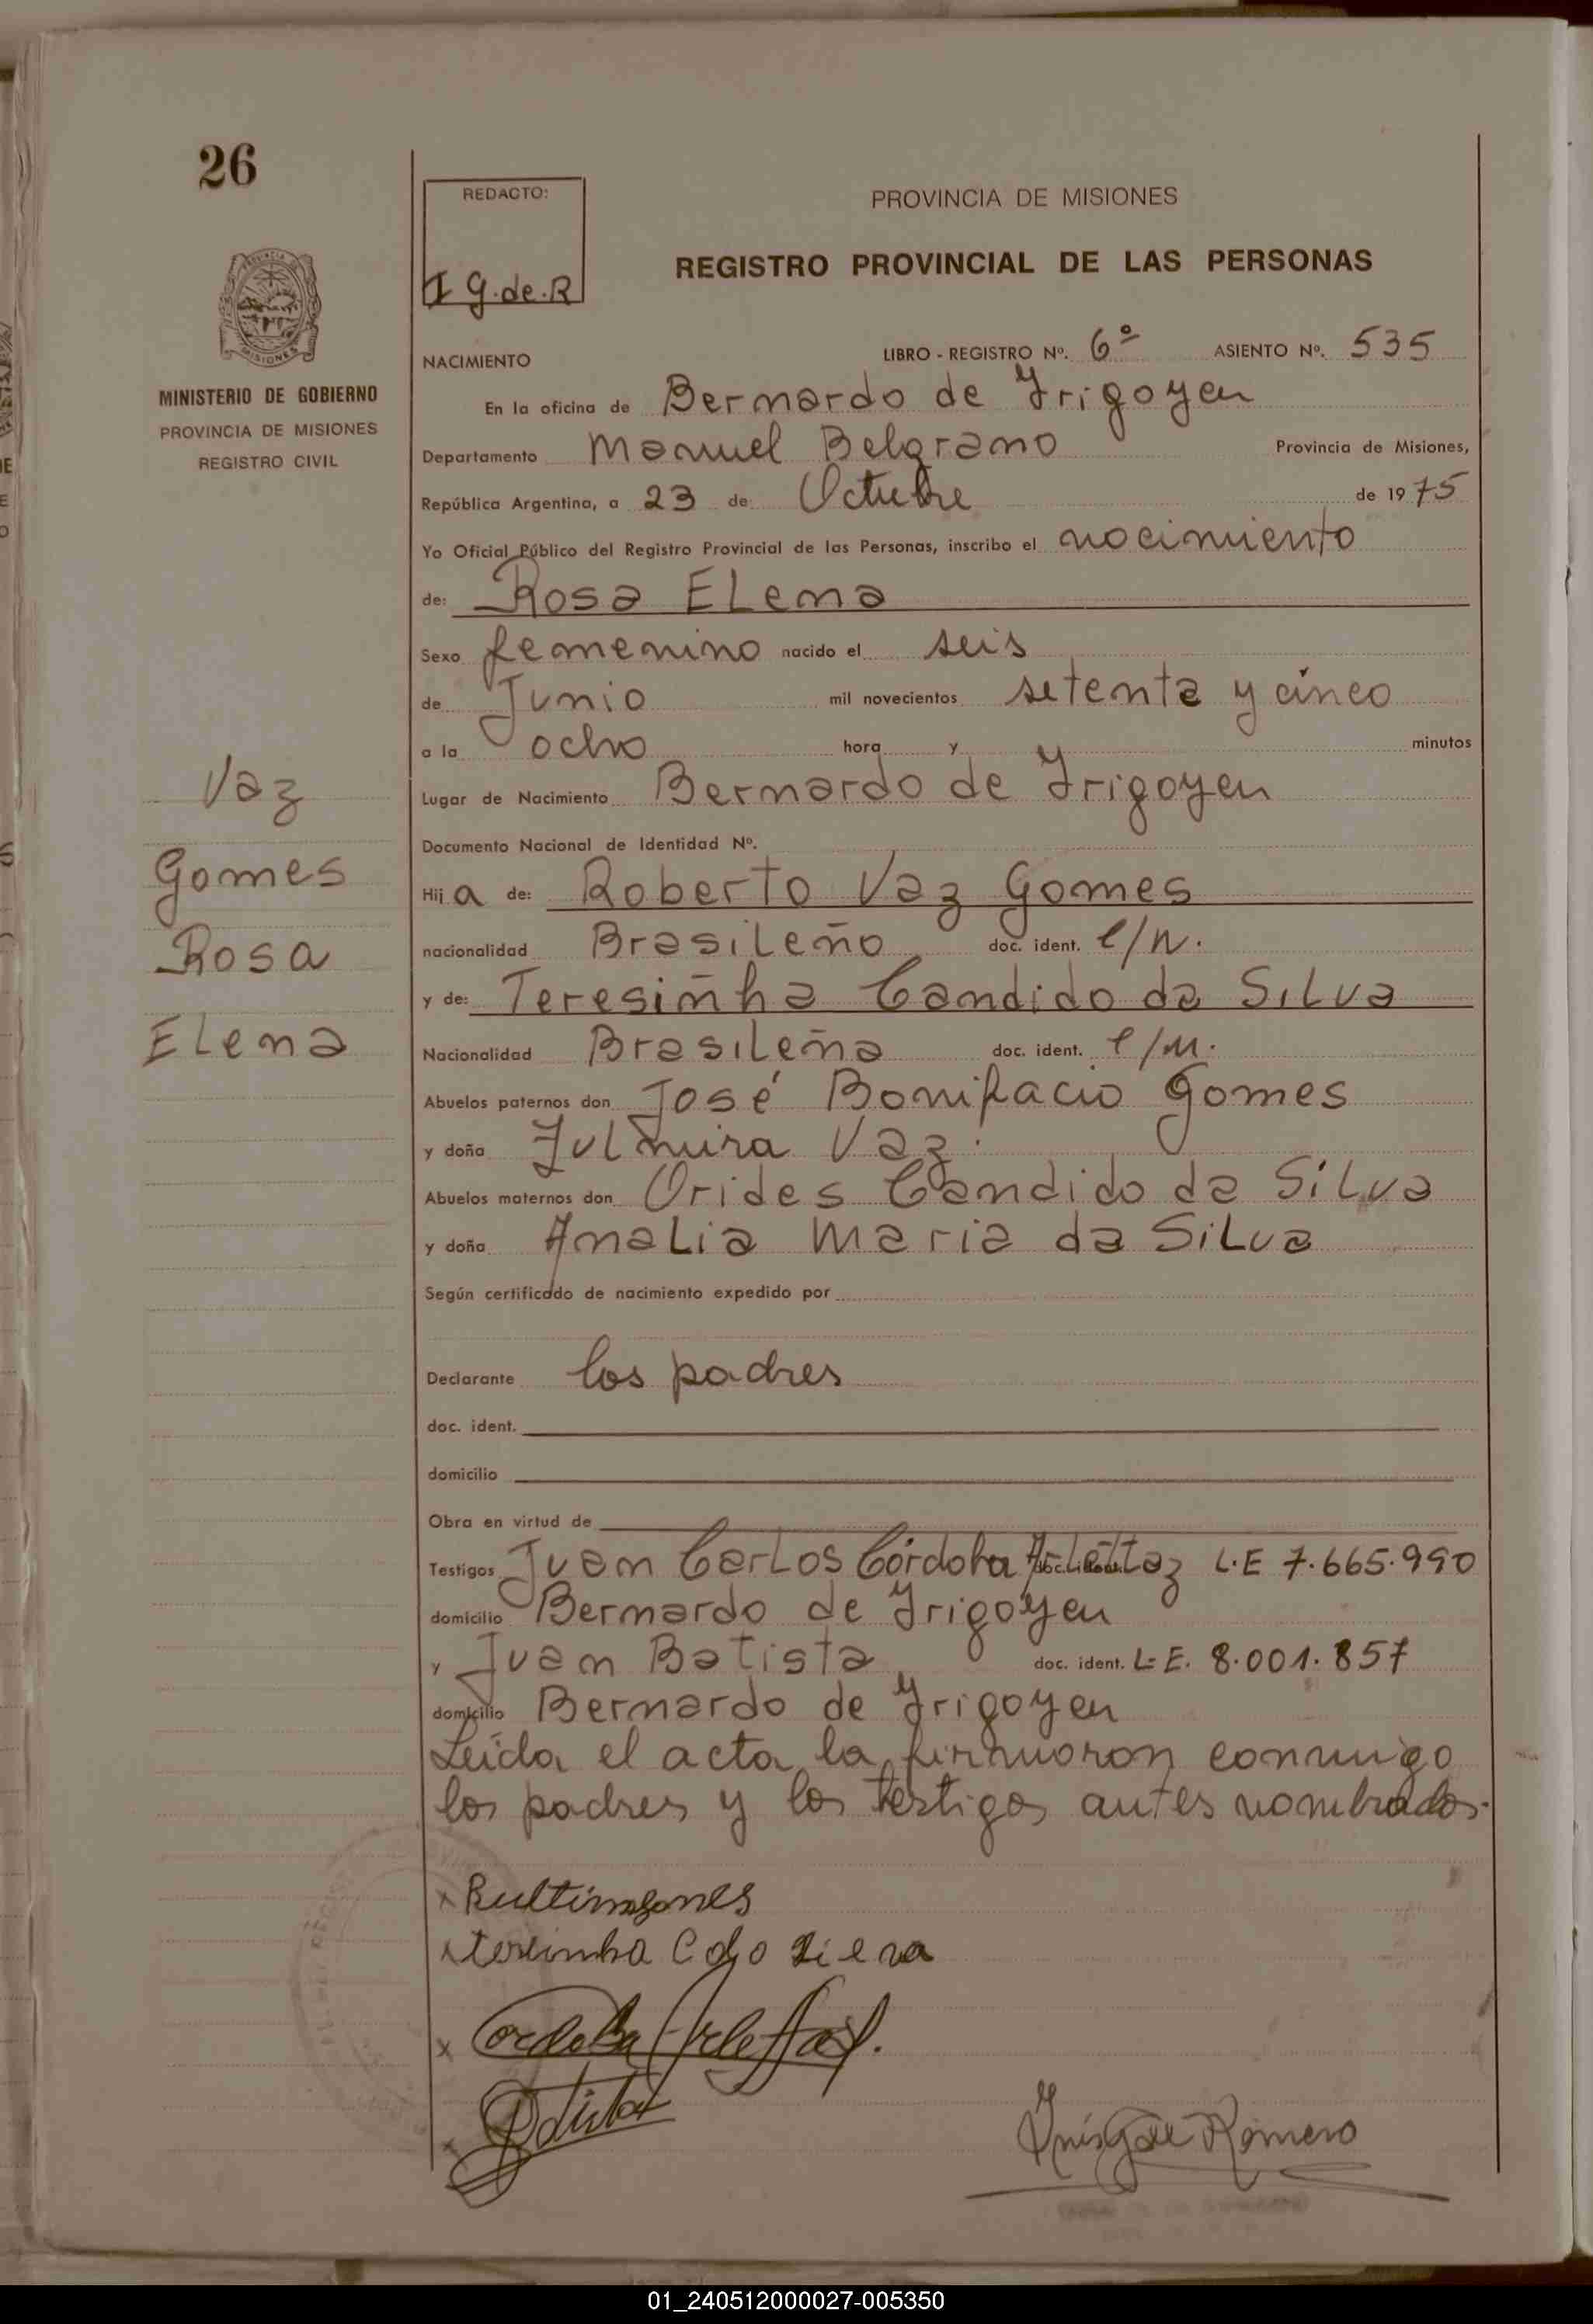 26
REDACTO:
I G. de. R
PROVINCIA DE MISIONES
REGISTRO PROVINCIAL DE LAS PERSONAS
MISIONES
MINISTERIO DE GOBIERNO
PROVINCIA DE MISIONES
REGISTRO CIVIL
NACIMIENTO LIBRO - REGISTRO Nº. 6º ASIENTO Nº. 535
En la oficina de Bernardo de Yrigoyen
Departamento Manuel Belgrano Provincia de Misiones,
República Argentina, a 23 de Octubre de 1975
Yo Oficial Público del Registro Provincial de las Personas, inscribo el nacimiento
de: Rosa Elena
Sexo femenino nacido el seis
de Junio mil novecientos setenta y cinco
a la ocho hora y minutos
Lugar de Nacimiento Bernardo de Yrigoyen
Documento Nacional de Identidad Nº.
Vaz
Gomes
Rosa
Elena
Hija de: Roberto Vaz Gomes
nacionalidad Brasileño doc. ident.
y de: Teresinha Candido da Silva
Nacionalidad Brasileña doc. ident.
Abuelos paternos don José Bonifacio Gomes
y doña Vaz
Abuelos maternos don Orides Candido da Silva
y doña Analia Maria da Silva
Según certificado de nacimiento expedido por
Declarante los padres
doc. ident.
domicilio
Obra en virtud de
Testigos Juan Carlos Córdoba Arlettaz L.E 7.665.990
domicilio Bernardo de Yrigoyen
y Juan Batista doc. ident. L.E. 8.001.857
domicilio Bernardo de Yrigoyen
Leída el acta la firmaron conmigo
los padres y los testigos antes nombrados.
Cordoba Arlettaz.
Inés G de Romero
01_240512000027-005350